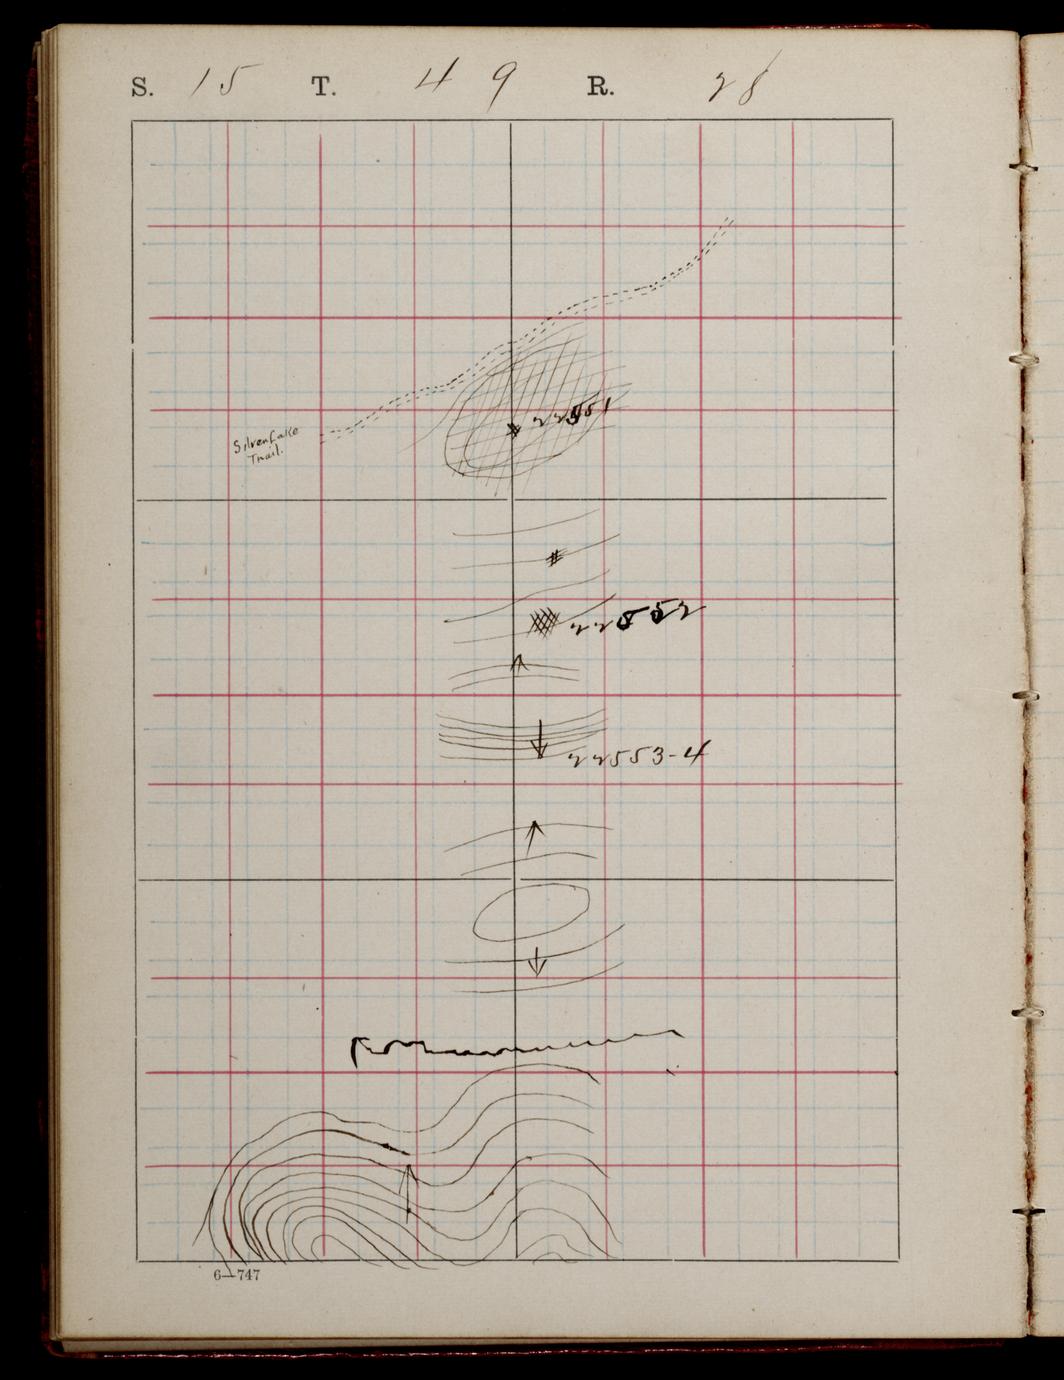 S. 15 T. 49 R. 28
Silver Lake
Trail.
22551
22552
22553-4
6—747